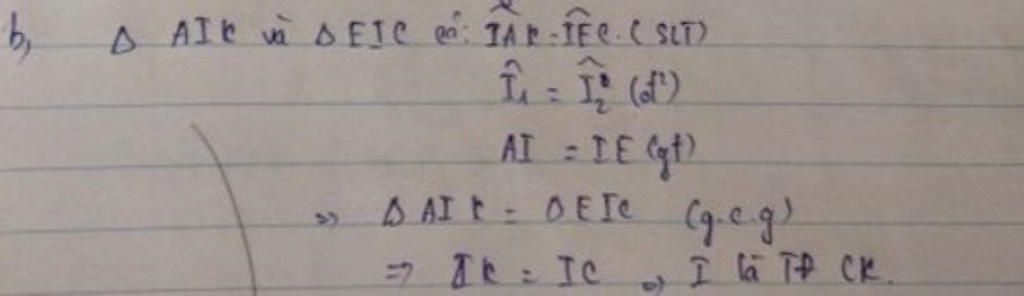 b, Δ AIK và Δ EIC có: ÎAK = ÎEC (SLT)
Î₁ = Î₂ (đ²)
AI = IE (gt)
=> Δ AIK = Δ EIC (g.c.g)
=> IK = IC => I là TĐ CK.